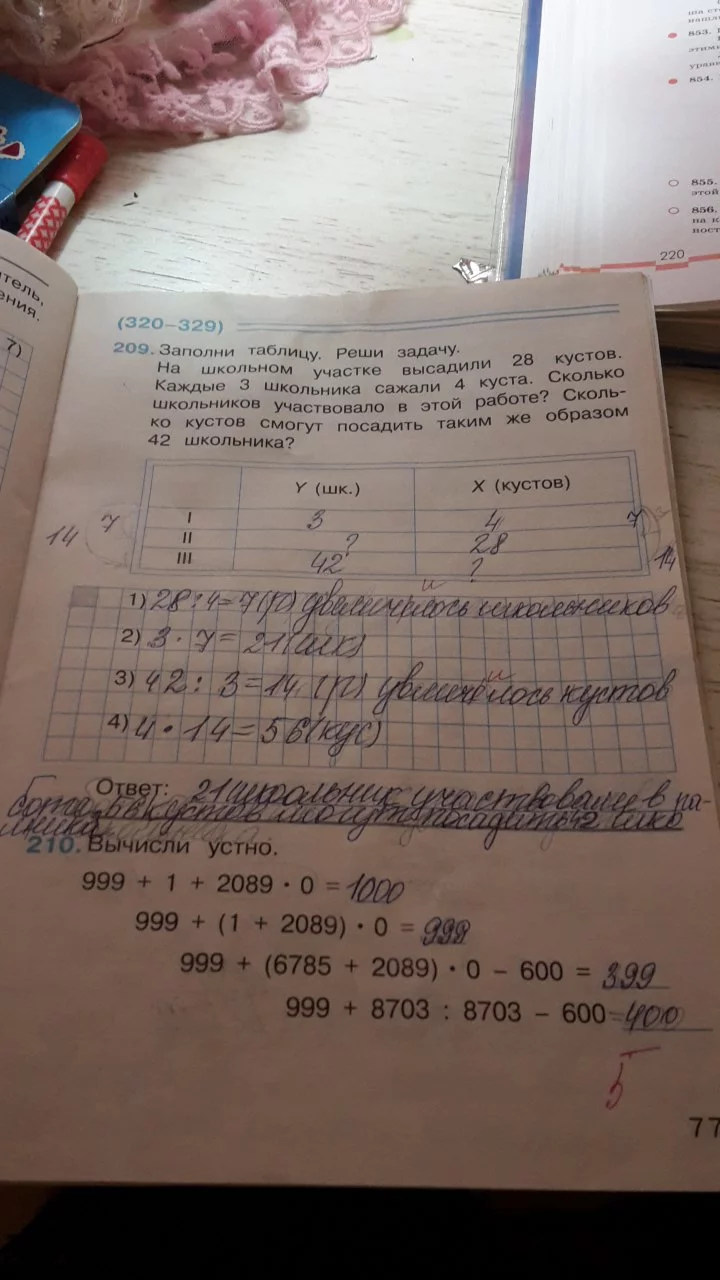 853.
этим
урав
854.
855.
этой
856.
на к
ност
220
ения.
7)
(320–329)
209. Заполни таблицу. Реши задачу.
На школьном участке высадили 28 кустов.
Каждые 3 школьника сажали 4 куста. Сколько
школьников участвовало в этой работе? Сколь-
ко кустов смогут посадить таким же образом
42 школьника?
Y (шк.) X (кустов)
7 I 3 4 7
14 II ? 28
III 42 ? 14
1) 28 : 4 = 7 (р) увеличилось школьников
2) 3 · 7 = 21 (шк)
3) 42 : 3 = 14 (р) увеличилось кустов
4) 4 · 14 = 56 (кус)
Ответ: 21 школьник участвовали в ра-
боте, 56 кустов могут посадить 42 шко
льника
210. Вычисли устно.
999 + 1 + 2089 · 0 = 1000
999 + (1 + 2089) · 0 = 999
999 + (6785 + 2089) · 0 – 600 = 399
999 + 8703 : 8703 – 600 = 400
5
77